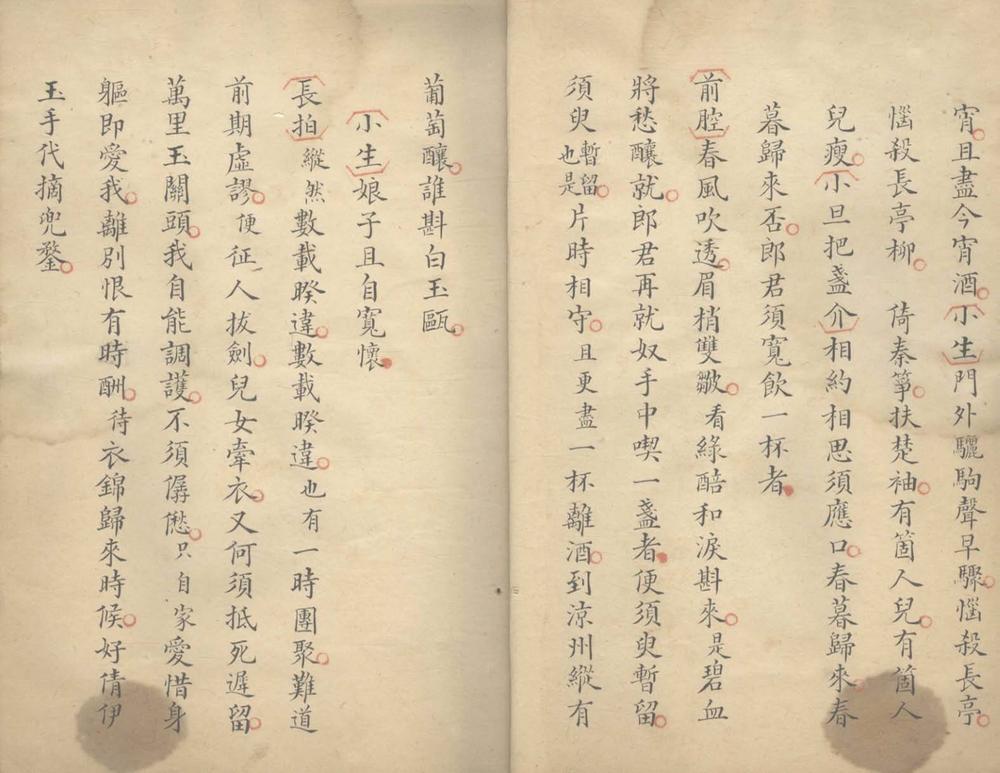 宵且盡今宵酒小生門外驪駒聲早驟惱殺長亭
惱殺長亭柳　倚秦箏扶楚袖有箇人兒有箇人
兒瘦小旦把盞介相約相思須應口春暮歸來春
暮歸來否郎君須寬飲一杯者
前腔春風吹透眉梢雙皺看綠醅和淚斟來是碧血
將愁釀就郎君再就奴手中喫一盞者便須臾暫留
須臾暫留也是片時相守且更盡一杯離酒到涼州縱有
葡萄釀誰斟白玉甌
小生娘子且自寬懷
長拍縱然數載睽違數載睽違也有一時團聚難道
前期虛謬便征人拔劍兒女牽衣又何須抵死遲留
萬里玉關頭我自能調護不須僝僽只自家愛惜身
軀即愛我離別恨有時酬待衣錦歸來時候好倩伊
玉手代摘兜鍪